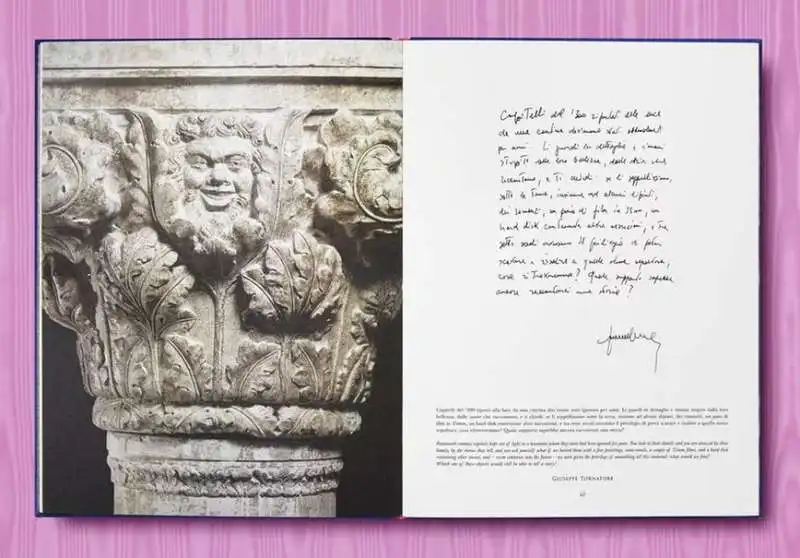 Capitelli del '300 riportati alla luce
da una cantina dov'erano stati abbandonati
per anni. Li guardi in dettaglio e rimani
stupito dalla loro bellezza, dalle storie che
raccontano, e ti chiedi: se li seppellissimo
sotto la terra, insieme ad alcuni dipinti,
dei romanzi, un paio di film in 35mm, un
hard disk contenente altre narrazioni, e tra
sette secoli avessimo il privilegio di poter
scavare e risalire a quella stessa sepoltura,
cosa ritroveremmo? Quale supporto saprebbe
ancora raccontarci una storia?
Capitelli del '300 riportati alla luce da una cantina dov'erano stati ignorati per anni. Li guardi in dettaglio e rimani stupito dalla loro
bellezza, dalle storie che raccontano, e ti chiedi: se li seppellissimo sotto la terra, insieme ad alcuni dipinti, dei romanzi, un paio di
film in 35mm, un hard disk contenente altre narrazioni, e tra sette secoli avessimo il privilegio di poter scavare e risalire a quella stessa
sepoltura, cosa ritroveremmo? Quale supporto saprebbe ancora raccontarci una storia?
Fourteenth century capitals kept out of sight in a basement where they have been ignored for years. You look at their details and you are amazed by their
beauty, by the stories they tell, and you ask yourself: what if we buried them with a few paintings, some novels, a couple of 35mm films, and a hard disk
containing other stories, and – seven centuries into the future – we were given the privilege of unearthing all this material: what would we find?
Which one of these objects would still be able to tell a story?
GIUSEPPE TORNATORE